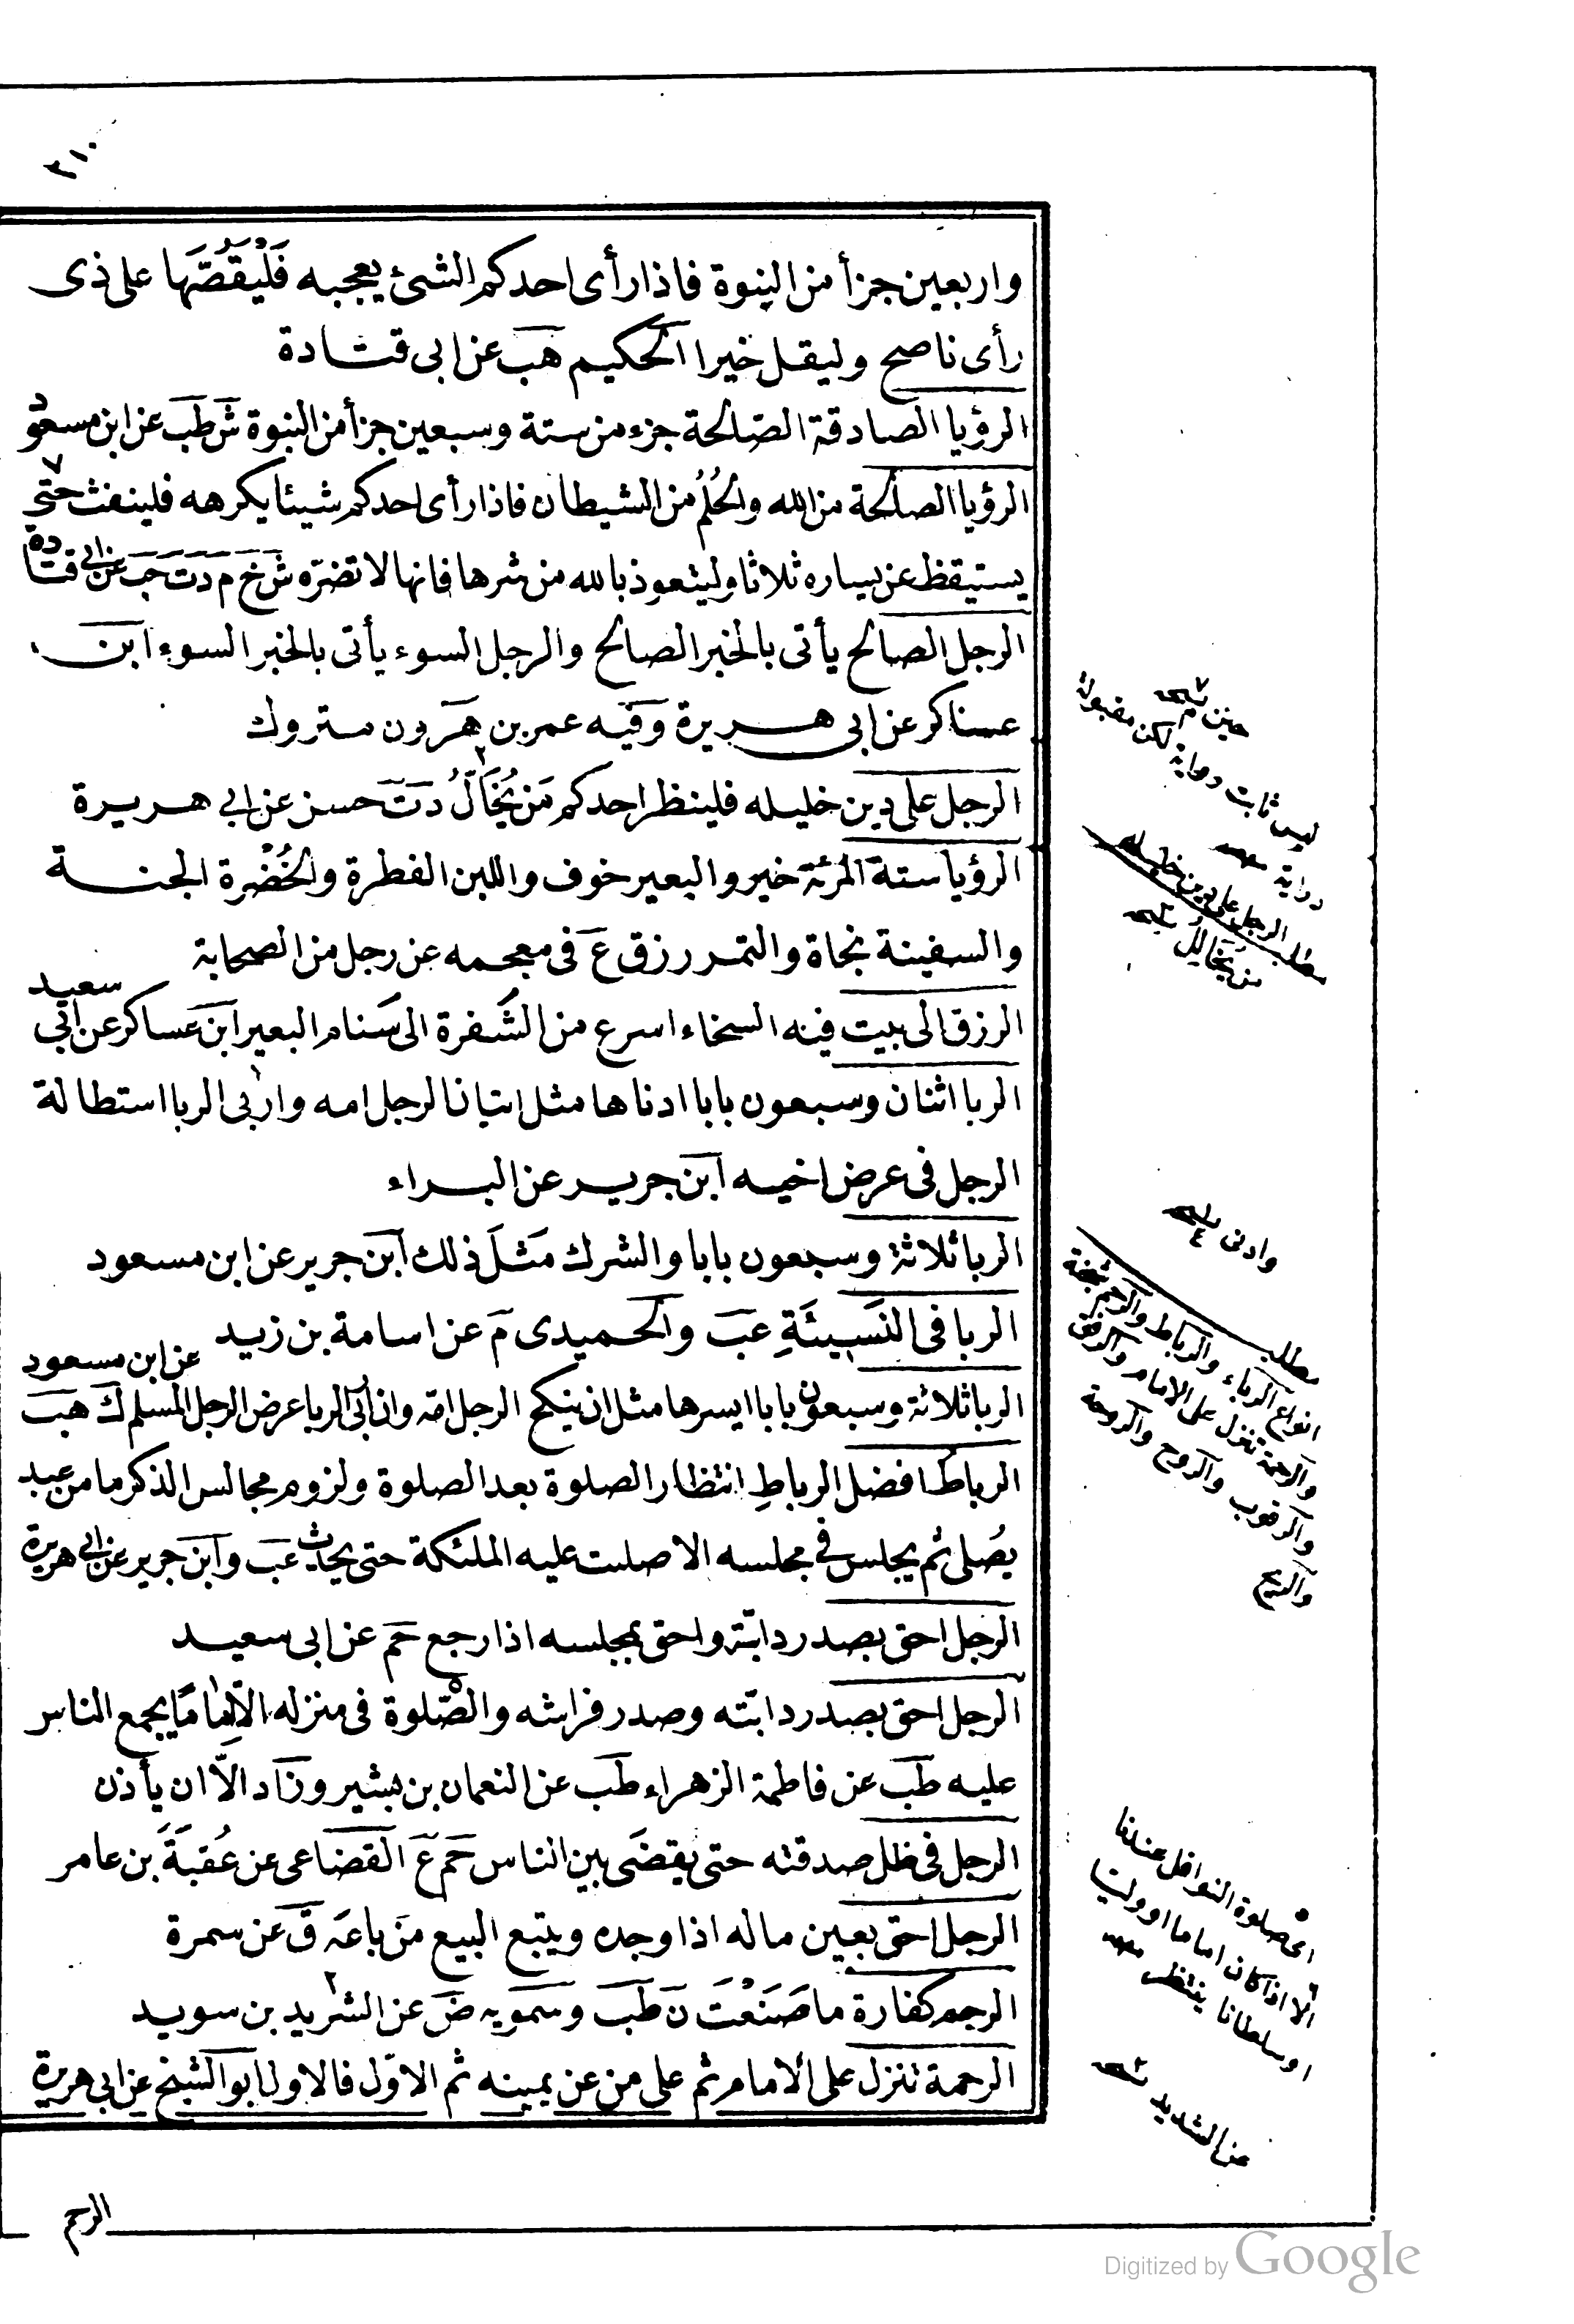 ٣١٠
واربعين جزأ من النبوة فاذا رأى احدكم الشئ يعجبه فَلْيَقُصَّهَا على ذى
رأى ناصح وليقل خيرا الحكيم هب عن ابى قتادة
الرؤيا الصادقة الصّالحة جزء من ستة وسبعين جزأ من النبوة ش طب عن ابن مسعود
الرؤيا الصالحة من الله والحُلُمُ من الشيطان فاذا رأى احدكم شيئا يكرهه فلينفث حتى ٧
يستيقظ عن يساره ثلاثا وليتعوذ بالله من شرها فانها لا تضرّه ش خ م د ت حب عن ابى قتادة
الرجل الصالح يأتى بالخبر الصالح والرجل السوء يأتى بالخبر السوء ابن
عساكر عن ابى هريرة وفيه عمر بن هرون متروك
الرجل على دين خليله فلينظر احدكم مَن يُخَالُّ ٢ د ت حسن عن ابى هريرة
الرؤيا ستة المرئة خير والبعير خوف واللبن الفطرة والخُضْرة الجنة
والسفينة نجاة والتمر رزق ع فى معجمه عن رجل من الصحابة
الرزق الى بيت فيه السخاء اسرع من الشَفرة الى سَنام البعير ابن عساكر عن ابى سعيد
الربا اثنان وسبعون بابا ادناها مثل اتيان الرجل امه واربى الربا استطالة
الرجل فى عرض اخيه ابن جرير عن البراء
الربا ثلاثة وسبعون بابا والشرك مَثلَ ذلك ابن جرير عن ابن مسعود
الربا فى النَسِيئَةِ عب والحميدى م عن اسامة بن زيد
الربا ثلاثة وسبعون بابا ايسرها مثل ان ينكح الرجل امّه وان اربى الربا عرض الرجل المسلم ك هب عن ابن مسعود
الرباط افضل الرباطِ انتظار الصلوة بعد الصلوة ولزوم مجالس الذكر ما من عبد
يُصلى ثم يجلس فى مجلسه الا صلت عليه الملئكة حتى يحدث عب وابن جرير عن ابى هريرة
الرجل احق بصدر دابّته واحق بمجلسه اذا رجع حم عن ابى سعيد
الرجل احق بصدر دابّته وصدر فراشه والصّلوة فى منزله الّا اِمَامًا يجمع الناس
عليه طب عن فاطمة الزهراء طب عن النعمان بن بشير وزاد الّا ان يأذن
الرجل فى ظل صدقته حتى يقضَى بين الناس حم ع القضاعى عن عُقبَةَ بن عامر
الرجل احق بعين ماله اذا وجده ويتبع البيع مَن باعَه ق عن سمرة
الرجم كفارة ما صَنَعْتَ ن طب وسمويه ض عن الشريد ٢ بن سويد
الرحمة تنزل على الامام ثم على من عن يمينه ثم الاوّل فالاول ابو الشيخ عن ابى هريرة
حين م نسخه ٧
ليس ثابت رواية لكن مقبولة
رواية
مطلب الرجل على دين خليله
من يُخَالِلُ نسخه ٢
وادنى نسخه
مطلب
انواع الرباء والرباط والرجم
والرحمة تنزل على الامام والرفق
والرقوب والروح والروحة
والريح
اى صلوة النوافل عندنا
الا اذا كان اماما او وليا
او سلطانا ينتظر
عن الشديد نسخه ٢
الرحم
Digitized by Google